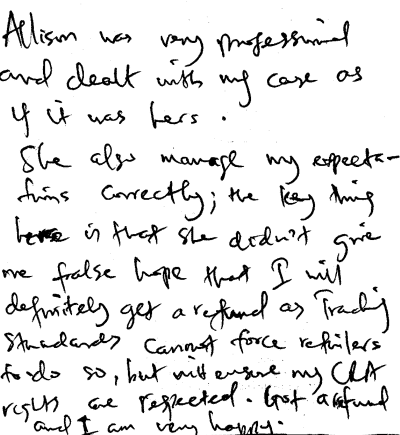 Allison was very professional
and dealt with my case as
if it was hers.
She also manage my expecta-
tions correctly; the key thing
here is that she didn't give
me false hope that I will
definitely get a refund as Trading
Standards cannot force retailers
to do so, but will ensure my CRA
rights are respected. Got a refund
and I am very happy.